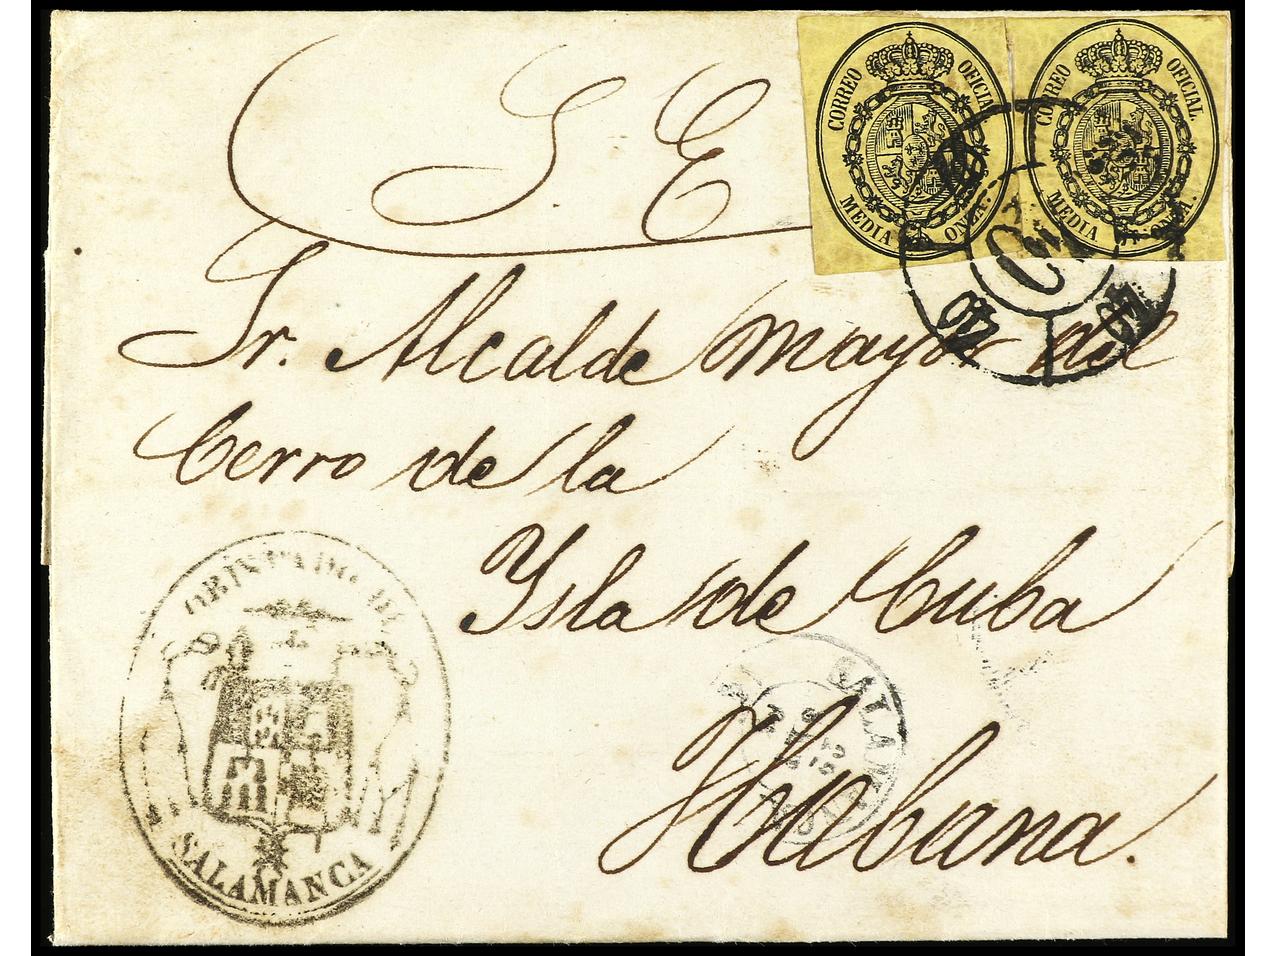 CORREO OFICIAL.
MEDIA ONZA.
CORREO OFICIAL.
MEDIA ONZA.
S. E.
40 40
Sr. Alcalde mayor del
Cerro de la
Ysla de Cuba
Habana.
OBISPADO DE
SALAMANCA
SALAMANCA